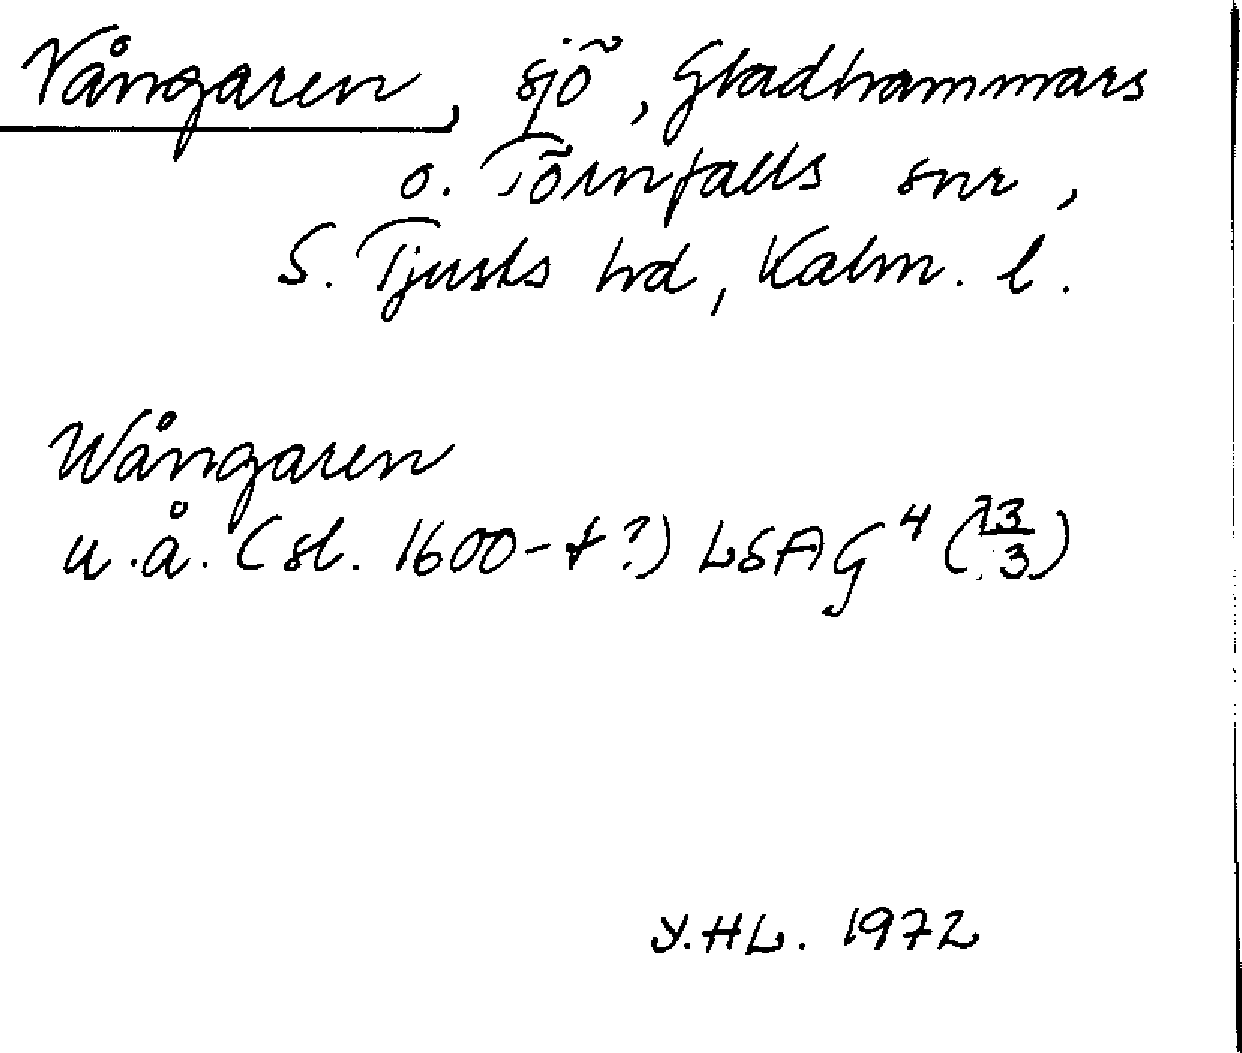 Vångaren, sjö, Gladhammars
o. Törnfalls snr,
S. Tjusts hd, Kalm. l.
Wångaren
u.å. (sl. 1600-t?) LSA G⁴ (13/3)
Y.HL. 1972